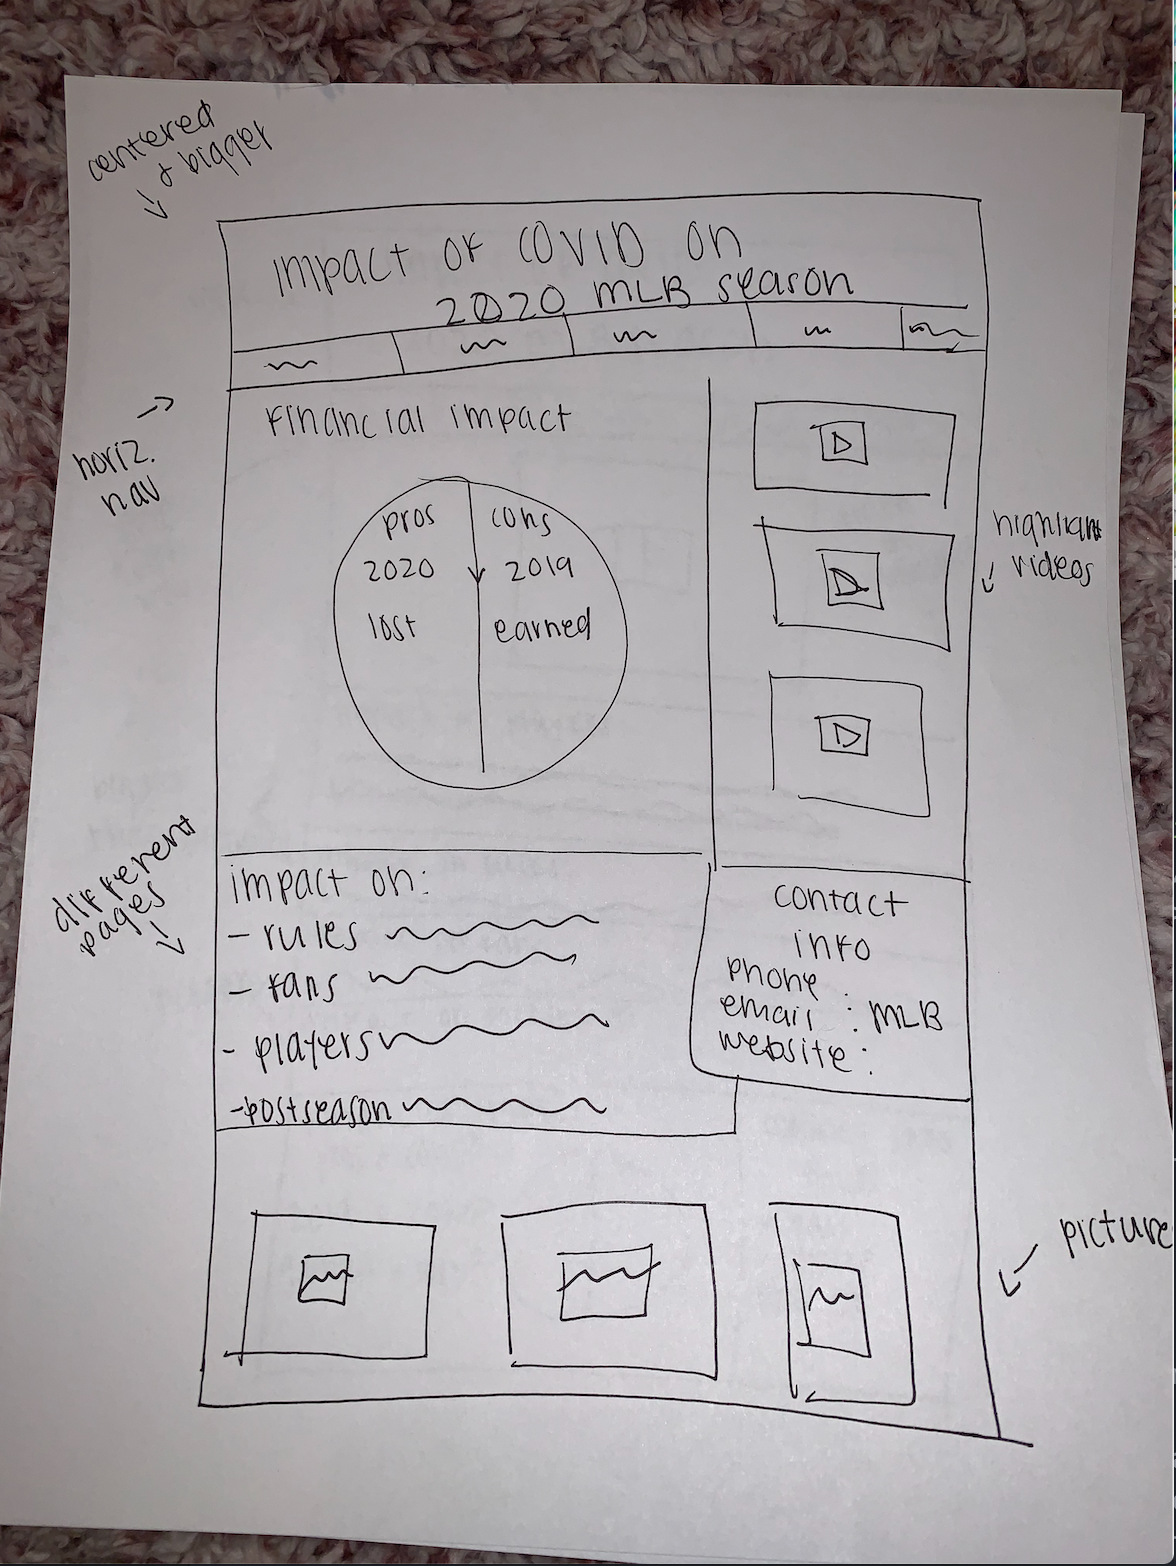 centered
& bigger
impact of COVID on
2020 MLB season
horiz.
nav
financial impact
pros
2020
lost
cons
2019
earned
highlight
videos
different
pages
impact on:
- rules
- fans
- players
- postseason
contact
info
phone :
email : MLB
website :
picture